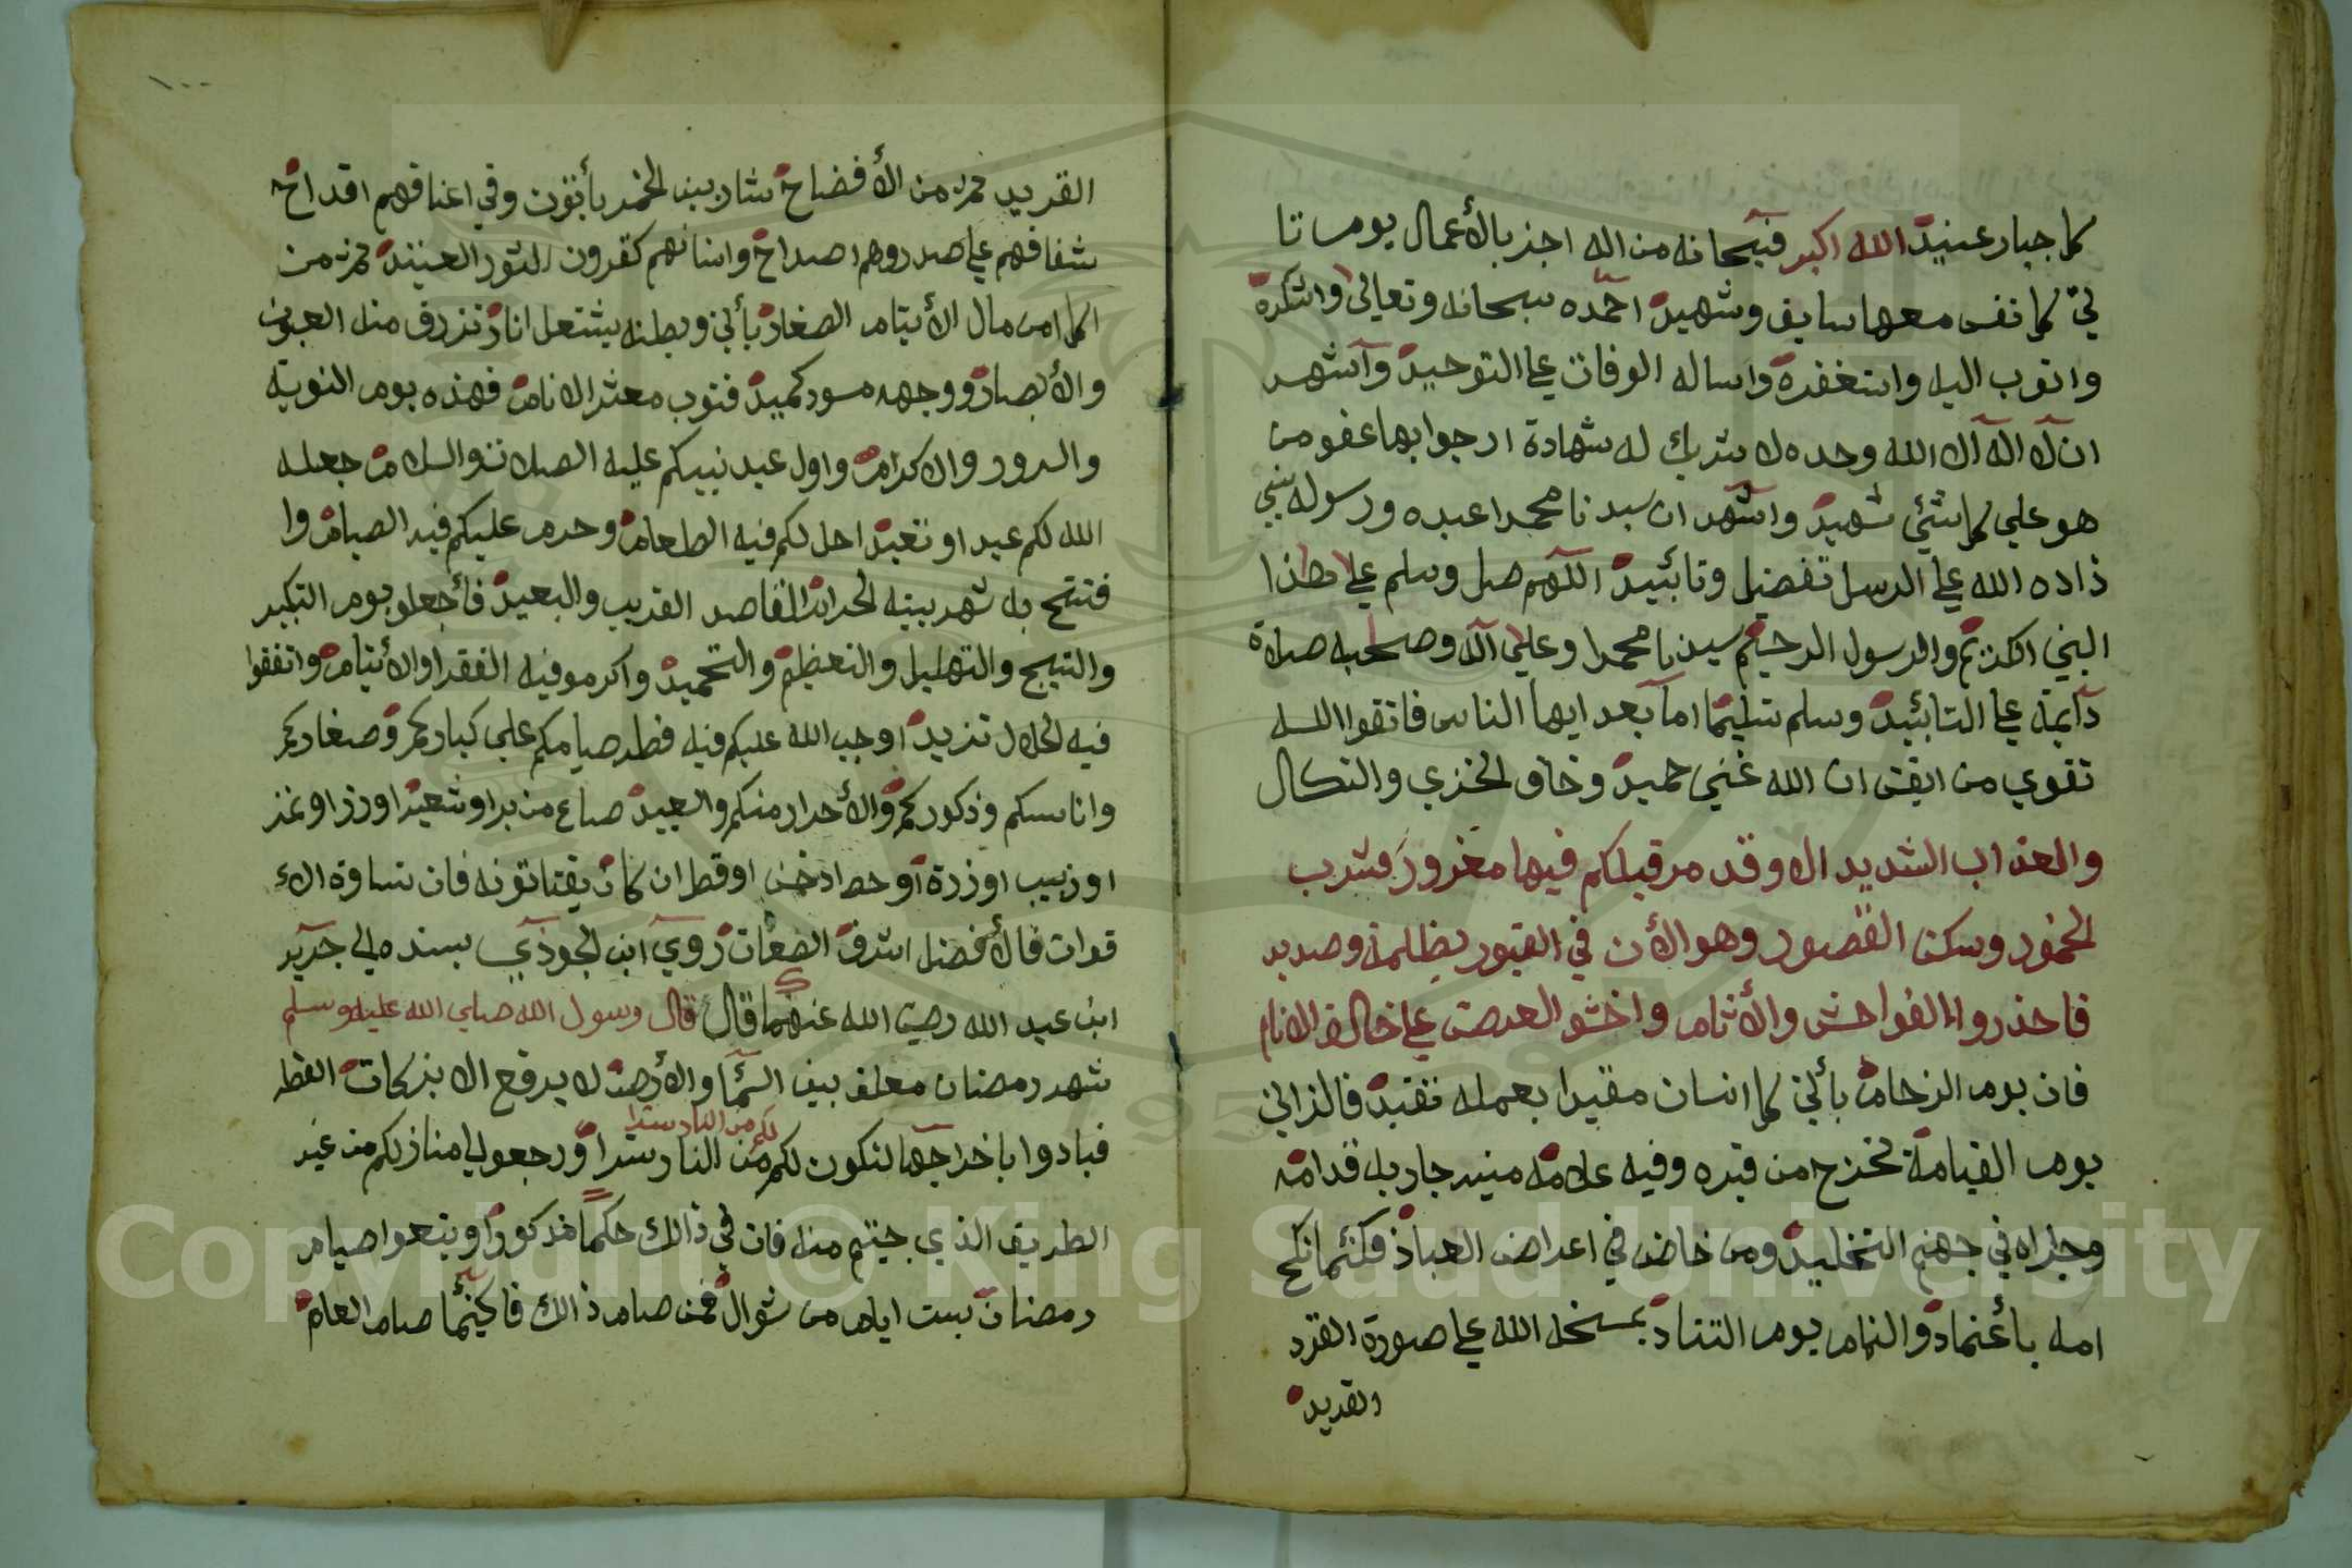 كل جبار عنيد الله اكبر فسبحانه من اله اجز بالأعمال يوم تا
تي كل نفس معها سايق وشهيد احمده سبحانه وتعالى واشكره
واتوب اليه واستغفره واساله الوفات على التوحيد وآشهد
ان لا اله آلا الله وحده لا شريك له شهادة ارجوا بها عفو من
هو علي كل شئي شهيد واشهد ان سيدنا محمدا عبده ورسوله نبي
زاده الله علي الرسل تفضيل وتائييد اللهم صل وسلم على هذا
النبي الكريم والرسول الرحيم سيدنا محمدا وعلى آله وصحبه صلاة
دآيمة على التائبيد وسلم تسليما اما بعد ايها الناس فاتقوا الله
تقوي من ايقن ان الله غني حميد وخاف الخزي والنكال
والعذاب الشديد الا وقد مر قبلكم فيها مغرور شرب
الخمور وسكن القصور وهو الأن في القبور بظلمة وصديد
فاحذروا الفواحش والأثام واخشو العرض على خالق الانام
فان يوم الزحام يأتي كل انسان مقيدا بعمله تقيد فالزاني
يوم القيامة يخرج من قبره وفيه علامه منيه جاريه قدامه
وجزاه في جهنم التخليد ومن خاض في اعراض العباد فكئنما نكح
امه بأغماد والنمام يوم التناد يمسخه الله على صورة القرد
القريد
القريد حمزه من الأفضاح شاربين الخمر يأتون وفي اعناقهم اقداح
شفافهم على صدروهم اصداح واسنانهم كقرون الثور العنيد حمزه من
اكل من مال الأيتام الصغار يأتي وبطنه يشتعل انار تزرق منه العيون
والأبصار ووجهه مسود كميد فتوب معشر الانام فهذه يوم التوبة
والسرور والاكرام واول عيد نبيكم عليه الصلاة والسلام جعله
الله لكم عيد او تعيد احل لكم فيه الطعام وحرم عليكم فيه الصيام وا
فتتح به شهر بيته الحرام القاصد القريب والبعيد فأجعلو يوم التكبير
والتسبيح والتهليل والتعظيم والتحميد واكرمو فيه الفقرا والأيتام واتفقوا
فيه الحلال تزيد اوجب الله عليكم فيه فطر صيامكم علي كباركم وصغاركم
واناسكم وذكوركم والأحرار منكم والعبيد صاع من برا وشعيرا ورزا وتمز
اوزبيب اوذرة آوحط ادخن اوقط ان كان يقتاتونه فان تساوة الاء
قوات فالأفضل اشرف الضعات رويآ ابن الجوذي بسنده الى جرير
ابن عبد الله رضي الله عنهما قال قال رسول الله صلي الله عليه وسلم
شهر رمضان معلف بين السما والأرض لا يرفع الا بزكات الفطه
فبادوا باخراجها لتكون لكم من النار سترا ورجعو الى منازلكم من غير
لكم من النار سترا
الطريف الذي جيتم منه فان في ذالك حكما مذكورا ويتعوا صيام
رمضان بست ايام من شوال فمن صام ذالك فاكينما صام العام